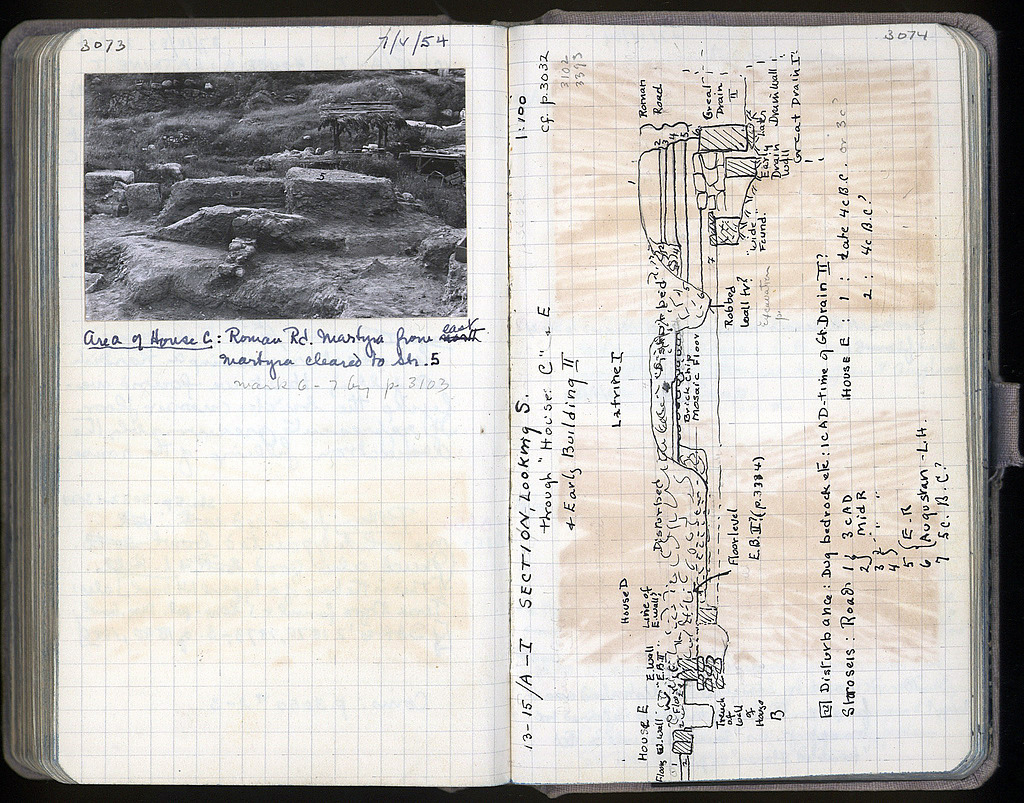 3073
7/V/54
5
Area of House C: Roman Rd. Martyra from east north
martyra cleared to str. 5
mark 6-7 by p. 3103
3074
1:100
cf. p. 3032
3102
3393
13-15/A-I SECTION, LOOKING S.
through "House C" & E
& Early Building II
House E
House D
Latrine I
Roman
Road
Great
Drain
II
Drain Wall
Great Drain I
Early
Drain
Wall
"wide"
Found.
Robbed
Wall tr?
Excavation
Disturbed
Disturbed
Brick Chip
Mosaic Floor
Line of
E. Wall?
E. Wall
E.B. II
Floor level
E.B. II? (p. 3384)
Trench
of
Wall
of
House
B
12 Disturbance: Dug bedrock etc: 1c AD - time of Gt. Drain II?
Starosels: Road: 1 } 3c AD
2 } Mid R
3 } " "
4 }
5 { E.R
6 { Augustan - L.H.
7 5c. B.C.?
HOUSE E: 1: Late 4c B.C. or 3c
2: 4c B.C.?